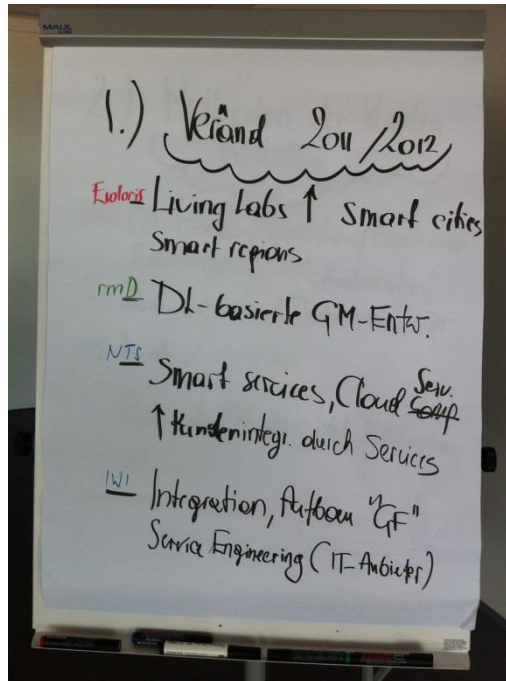 MAUL
1.) Veränd 2011/2012
Living Labs ↑ Smart cities
Smart regions
rmD DL-basierte GM-Entw.
NTS Smart services, Cloud Serv.
↑ Kundenintegr. durch Services
IWI Integration, Aufbau "GF"
Service Engineering (IT-Anbieter)